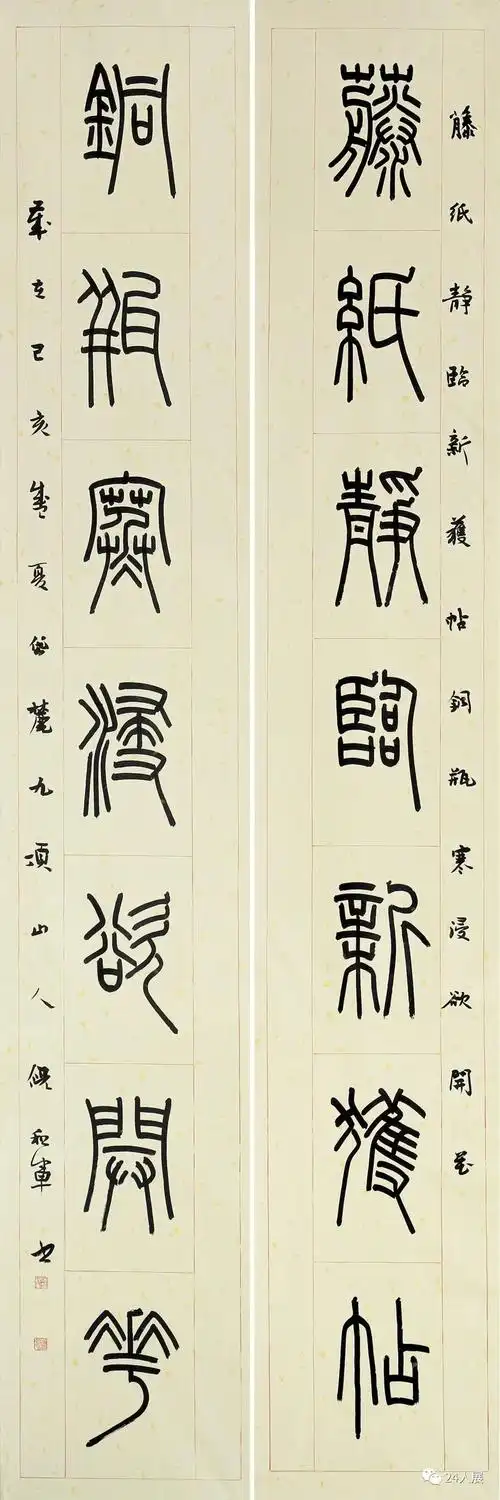 藤紙靜臨新獲帖銅瓶寒浸欲開花
藤紙靜臨新獲帖
銅瓶寒浸欲開花
歲在己亥盛夏岱麓九頂山人倪和軍书
24人展